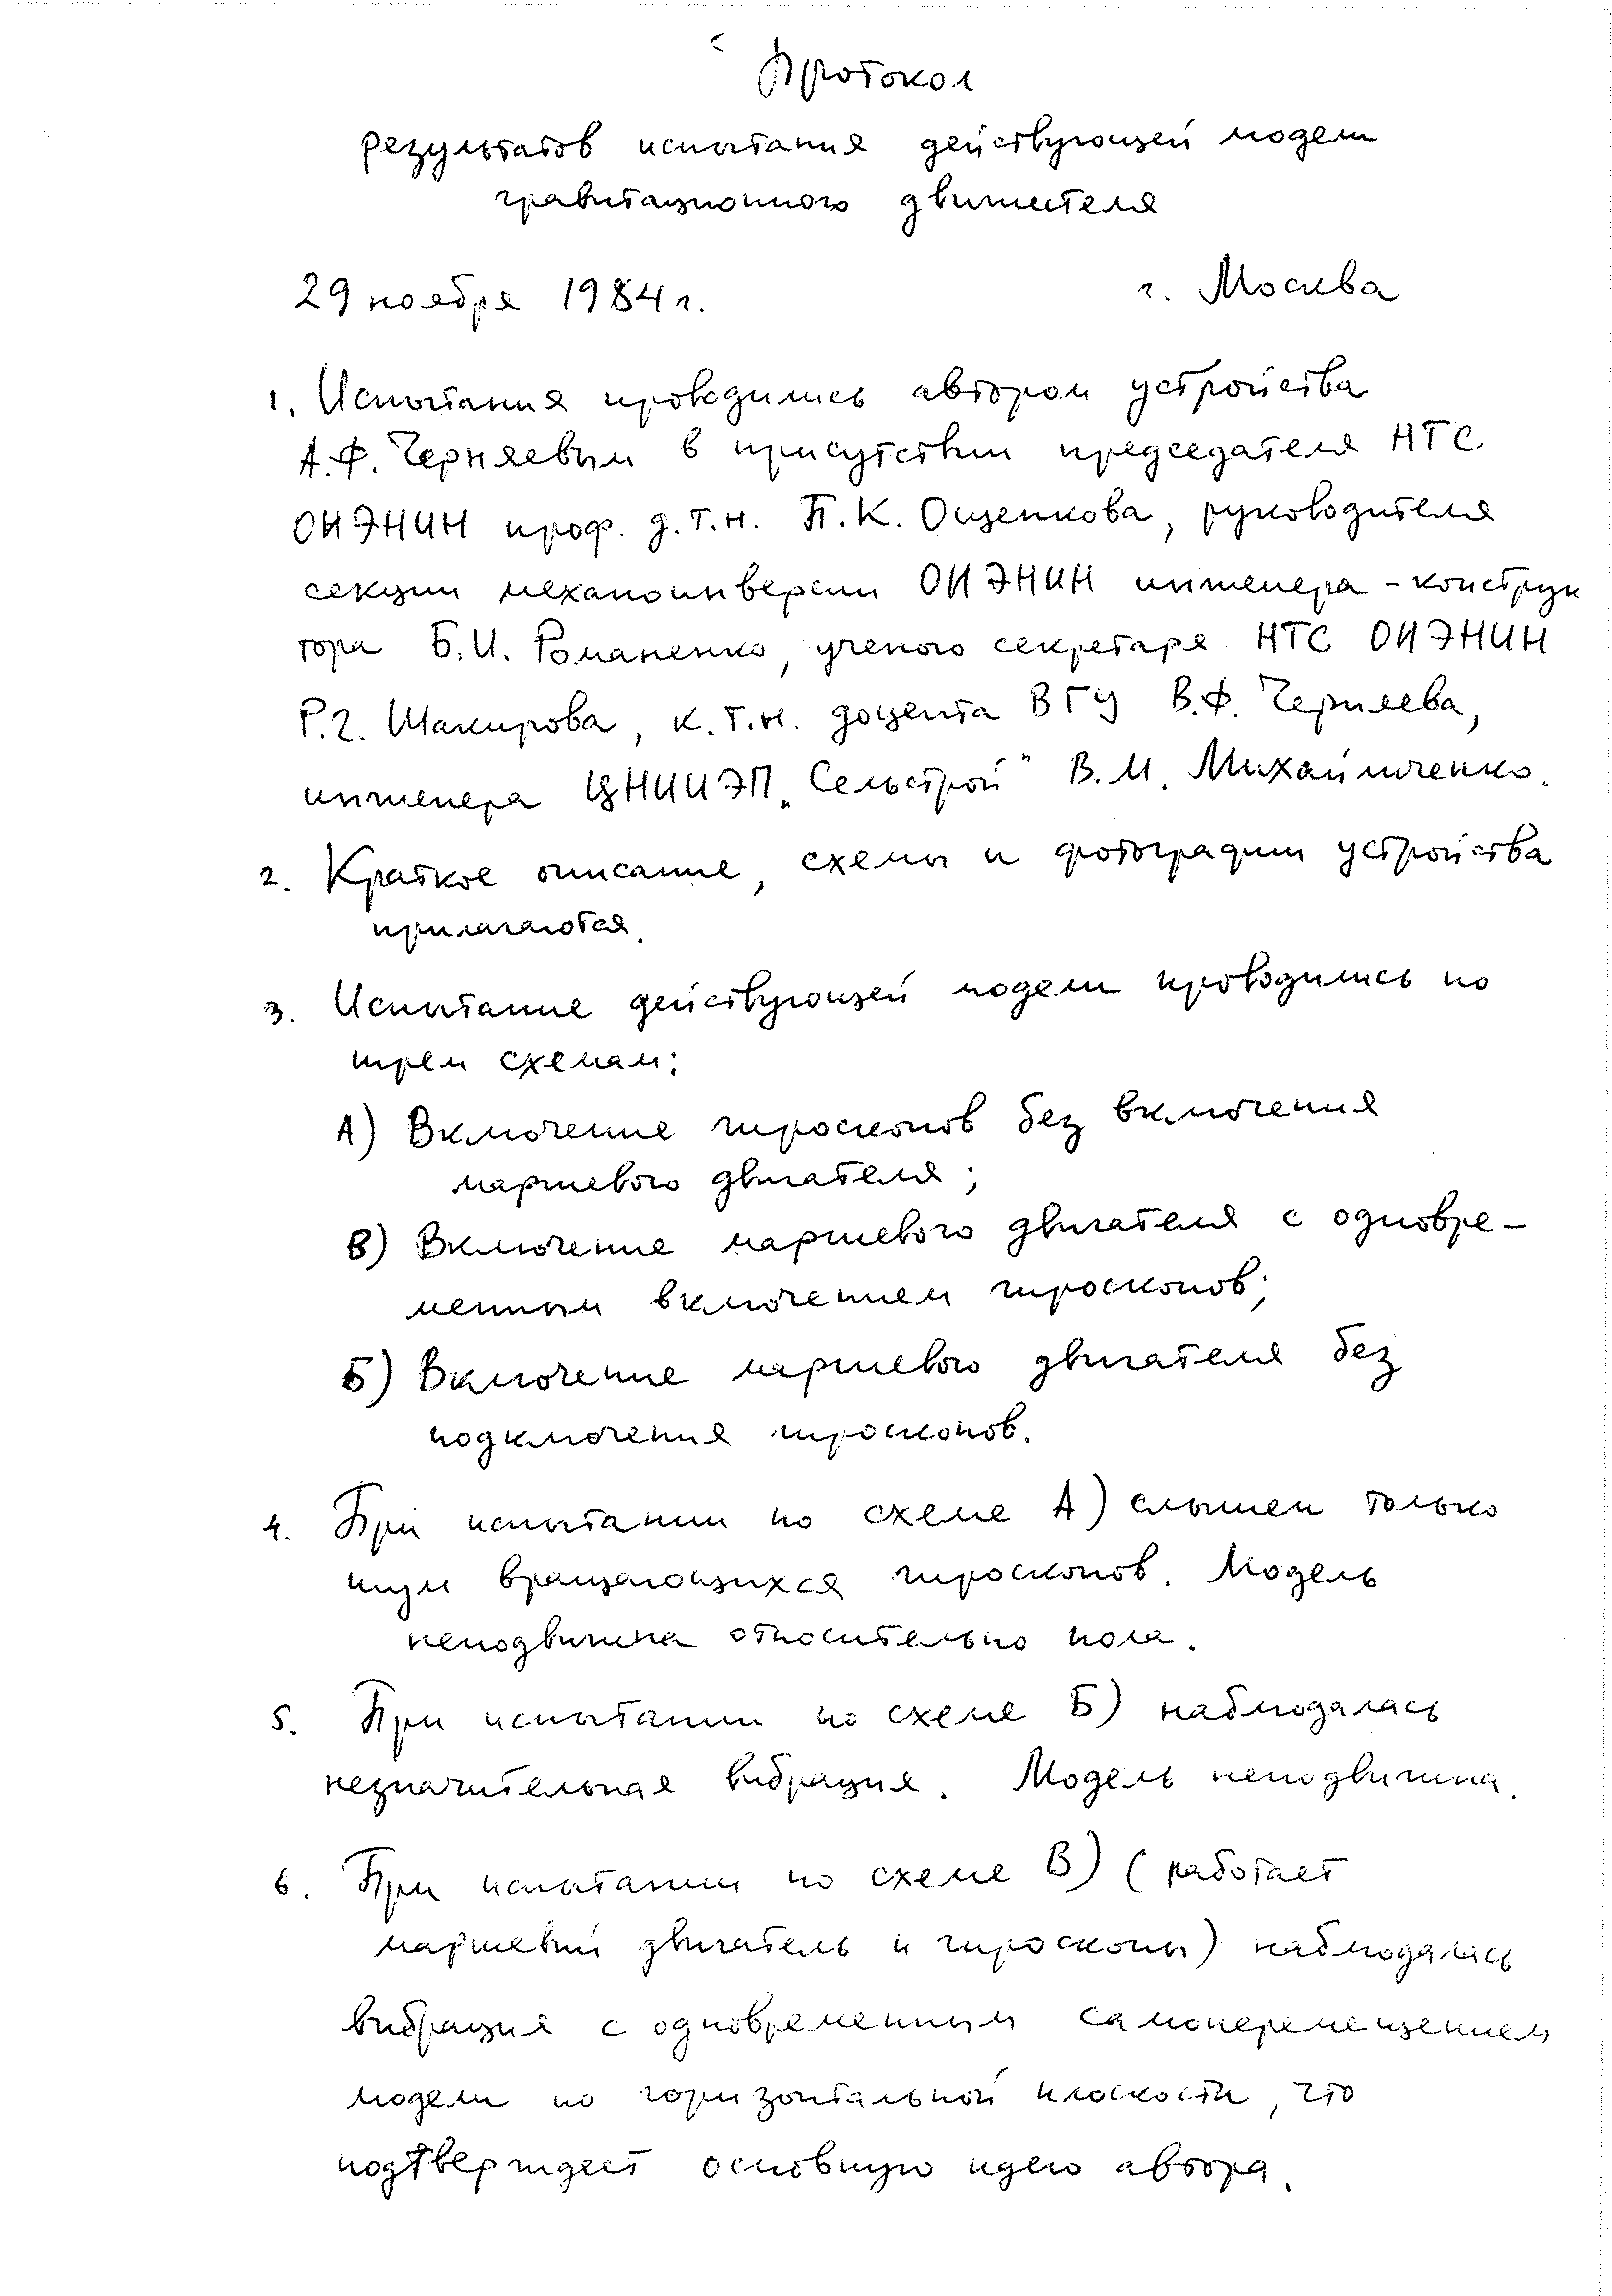 Протокол
результатов испытания действующей модели
гравитационного движителя
29 ноября 1984 г.
г. Москва
1. Испытания проводились автором устройства
А.Ф. Черняевым в присутствии председателя НТС
ОИЭНИН проф. д.т.н. П.К. Ощепкова, руководителя
секции механоинверсии ОИЭНИН инженера-конструк
тора Б.И. Романенко, ученого секретаря НТС ОИЭНИН
Р.Г. Шакирова, к.т.н. доцента ВГУ В.Ф. Черняева,
инженера ЦНИИЭП „Сельстрой" В.И. Михайличенко.
2. Краткое описание, схемы и фотографии устройства
прилагаются.
3. Испытание действующей модели проводились по
трем схемам:
А) Включение гироскопов без включения
маршевого двигателя;
В) Включение маршевого двигателя с одновре-
менным включением гироскопов;
Б) Включение маршевого двигателя без
подключения гироскопов.
4. При испытании по схеме А) слышен только
шум вращающихся гироскопов. Модель
неподвижна относительно пола.
5. При испытании по схеме Б) наблюдалась
незначительная вибрация. Модель неподвижна.
6. При испытании по схеме В) (работает
маршевый двигатель и гироскопы) наблюдалась
вибрация с одновременным самоперемещением
модели по горизонтальной плоскости, что
подтверждает основную идею автора.